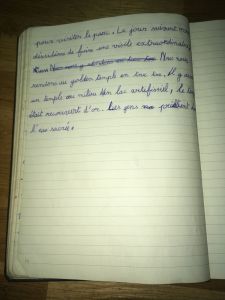 pour visiter le parc. Le jour suivant nous
décidâmes de faire une visite extraordinaire
Nous nous
rendîmes au golden temple en tuc tuc. Il y avait
un temple au milieu d'un lac artificiel, le
était recouvert d'or. Les gens prient
l'eau sacrée.